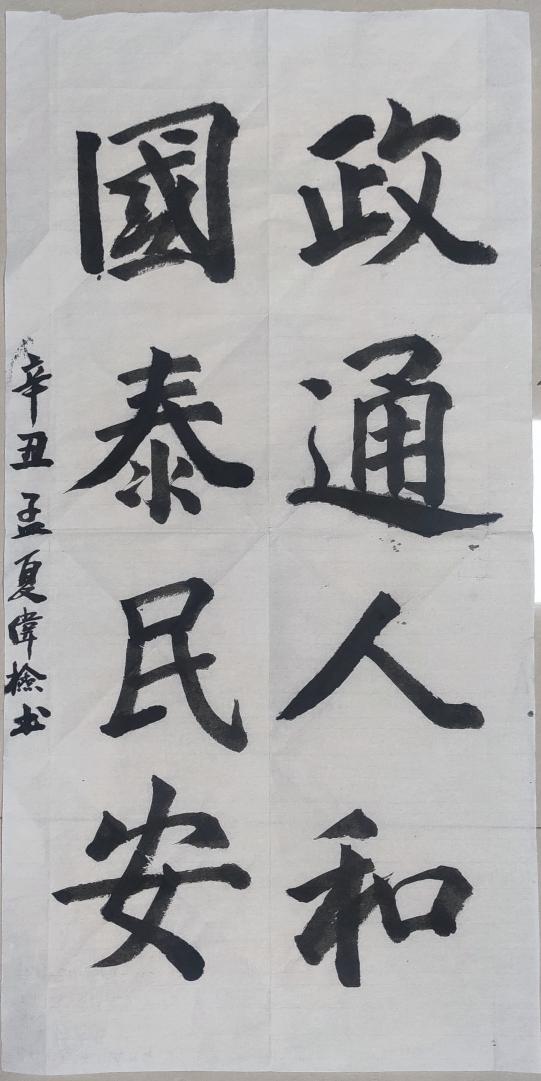 政通人和
國泰民安
辛丑孟夏偉檢书